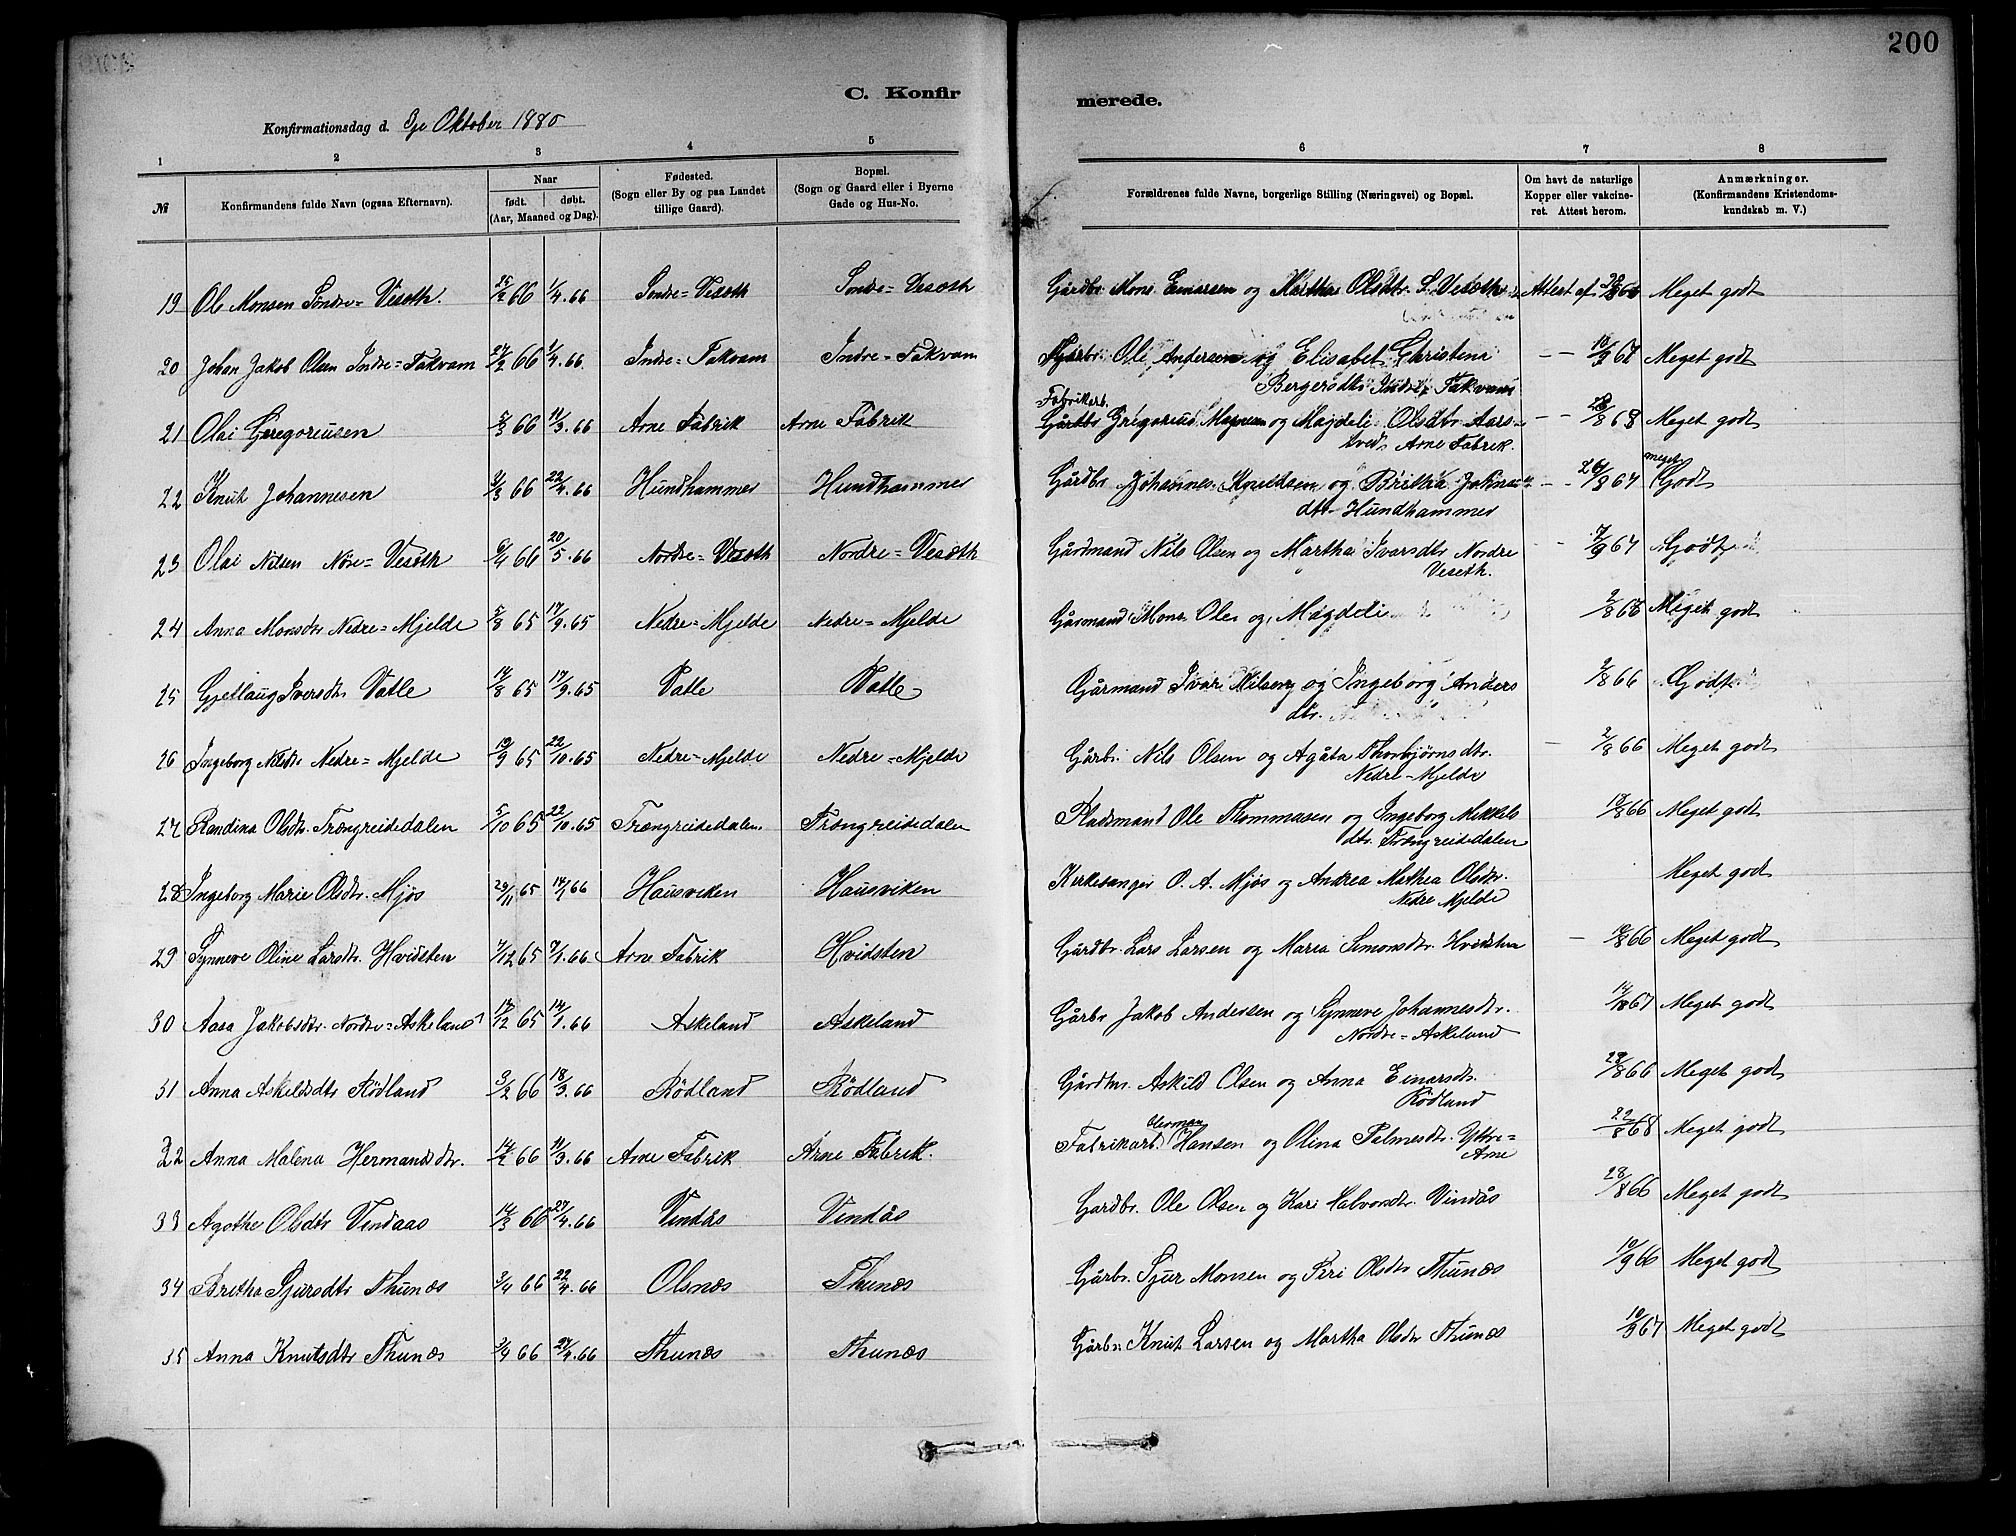 200
C. Konfirmerede.
Konfirmationsdag d. 3je Oktober 1880
1 2 3 4 5 6 7 8
№ Konfirmandens fulde Navn (ogsaa Efternavn). Naar født. døbt. (Aar, Maaned og Dag). Fødested. (Sogn eller By og paa Landet tillige Gaard). Bopæl. (Sogn og Gaard eller i Byerne Gade og Hus-No. Forældrenes fulde Navne, borgerlige Stilling (Næringsvei) og Bopæl. Om havt de naturlige Kopper eller vakcineret. Attest herom. Anmærkninger. (Konfirmandens Kristendomskundskab m. V.)
19 Ole Monsen Søndre=Veseth. 25/2 66 1/4.66 Søndre=Veseth Søndre=Veseth Gårdbr. Mons Einarsen og Martha Olsdtr. S. Veseth Attest af Meget godt
20 Johan Jakob Olsen Indre=Takvam 27/2 66 1/4.66 Indre=Takvam Indre=Takvam Ole Andersen og Elisabet Christene
Bergersdtr Indre Takvam Meget godt
Fabrikarb.
21 Olai Gregoriusen 5/3 66 11/3.66 Arne Fabrik Arne Fabrik Gregorius Magnesen og Magdeli Olsdtr. Aarstved, Arne Fabrik. 28/8 68 Meget godt
22 Knut Johannesen 9/3 66 22/4.66 Hundhammer Hundhammer Gårdbr Johannes Knudsen og Britha
dtr Hundhammer 26/8 67 meget Godt
23 Olai Nilsen Nore=Veseth 6/4 66 20/5.66 Nordre=Veseth Nordre=Veseth Gårdmand Nils Olsen og Martha Ivarsdtr Nordre
Veseth. 7/9 67 Godt
24 Anna Monsdtr Nedre=Mjelde 5/8 65 17/9.65 Nedre=Mjelde Nedre=Mjelde Gårmand Mons Olsen og Magdeli 2/8 66 Meget godt
25 Gjetlaug Iversdtr Vatle 14/8 65 17/9.65 Vatle Vatle Gårmand Ivar Nilsen og Ingeborg Anders
dtr. 2/8 66 Godt
26 Ingeborg Nilsdtr Nedre=Mjelde 19/9 65 22/10.65 Nedre=Mjelde Nedre=Mjelde Gårbr. Nils Olsen og Agåta Thorbjørnsdtr.
Nedre=Mjelde 2/8 66 Meget godt
27 Randina Olsdtr. Trængreidedalen 5/10 65 22/10.65 Trængreidedalen. Trængreidedalen Pladsmand Ole Thommasen og Ingeborg Mikkels
dtr. Trængreidedalen 17/8 66 Meget godt
28 Ingeborg Marie Olsdtr. Mjøs 29/11 65 14/1 66 Hausviken Hausviken Kirkesanger O. A. Mjøs og Andrea Mathea Olsdtr.
Nedre Mjelde Meget godt
29 Synneve Oline Larsdtr. Hvidsten 7/12 65 7/1.66 Arne Fabrik Hvidsten Gårdbr. Lars Larsen og Maria Simonsdtr. Hvidsten Meget godt
30 Aasa Jakobsdtr. Nordre=Askeland 17/12 65 14/1.66 Askeland Askeland Gårbr Jakob Andersen og Synneve Johannesdtr.
Nordre=Askeland Meget godt
31 Anna Askildsdtr Rödland 3/2 66 18/3.66 Rödland Rödland Gårdbr. Askild Olsen og Anna Einarsdtr.
Rödland 29/8 66 Meget godt
32 Anna Malena Hermansdtr. 14/2 66 11/3.66 Arne Fabrik Arne Fabrik. Fabrikarb. Herman Hansen og Olina Palmesdtr. Yttre=
Arne 22/8 68 Meget godt
33 Agothe Olsdtr Vindaas 14/3 66 27/4.66 Vindås Vindås Gardbr. Ole Olsen og Kari Halvorsdtr. Vindås 28/8 66 Meget godt
34 Britha Sjursdtr Thunæs 3/4 66 22/4.66 Olsnæs Thunæs Gårbr. Sjur Monsen og Peri Olsdtr Thunæs 10/9 66 Meget godt
35 Anna Knutsdtr Thunæs 3/4 66 27/4.66 Thunæs Thunæs Gårbr. Knut Larsen og Martha Olsdtr Thunæs Meget godt